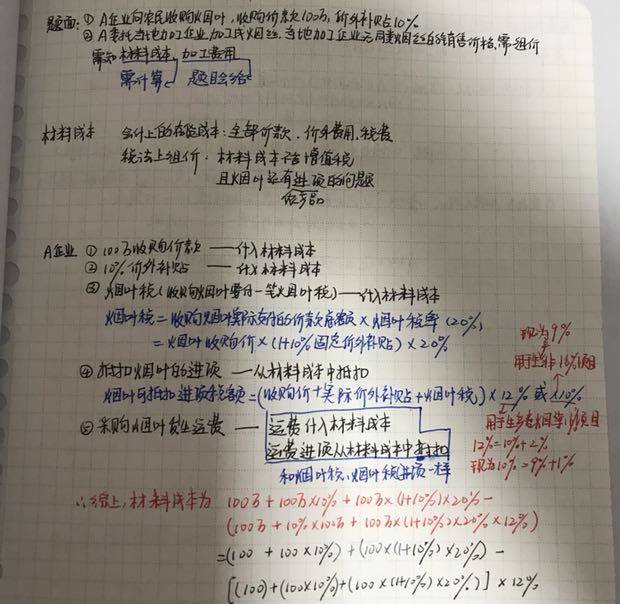 题面: ① A企业向农民收购烟叶, 收购价款100万, 价外补贴10%
② A委托当地加工企业, 加工成烟丝, 当地加工企业无同类烟丝的销售价格, 需组价
需知材料成本, 加工费用
需计算 题目会给
材料成本 会计上的存货成本: 全部价款、价外费用、税费
税法上组价: 材料成本不含增值税
且烟叶还有进项的问题
农产品
A企业 ① 100万收购价款 —— 计入材料成本
② 10%价外补贴 —— 计入材料成本
③ 烟叶税(收购烟叶需付一笔烟叶税) —— 计入材料成本
烟叶税 = 收购烟叶实际支付的价款总额 × 烟叶税率 (20%)
= 烟叶收购价 × (1+10%固定价外补贴) × 20%
现为9%
用于生产非16%项目
④ 抵扣烟叶的进项 —— 从材料成本中抵扣
烟叶可抵扣进项税额 = (收购价+实际价外补贴+烟叶税) × 12% 或 ×10%
用于生产卷烟等16%项目
12%=10%+2%
现为10%=9%+1%
⑤ 采购烟叶发生运费 —— 运费计入材料成本
运费进项从材料成本中抵扣
和烟叶税、烟叶税进项一样
∴综上, 材料成本为 100万 + 100万×10% + 100万×(1+10%)×20% −
(100万 + 10%×100万 + 100万×(1+10%)×20% × 12%)
=(100 + 100×10%) + (100×(1+10%)×20%) −
[(100)+(100×10%)+(100×(1+10%)×20%)] × 12%